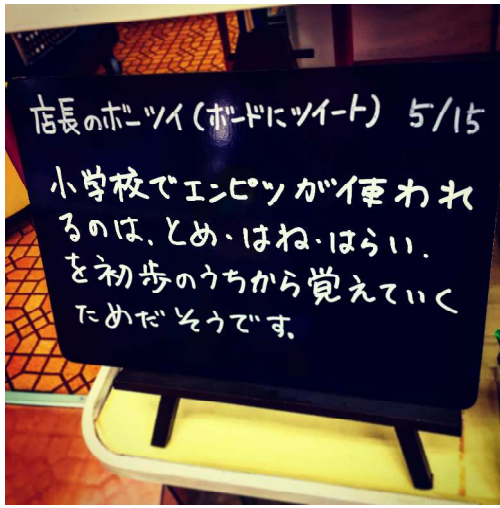 店長のボーツイ(ボードにツイート) 5/15
小学校でエンピツが使われ
るのは、とめ・はね・はらい.
を初歩のうちから覚えていく
ためだそうです。